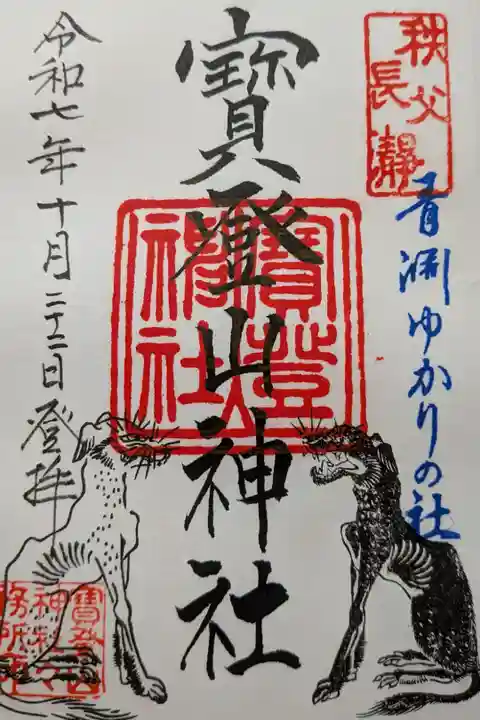 秩父
長瀞
青淵ゆかりの社
寳登山神社
寳登山
神社
令和七年十月二十二日登拝
寳登山
神社々
務所印